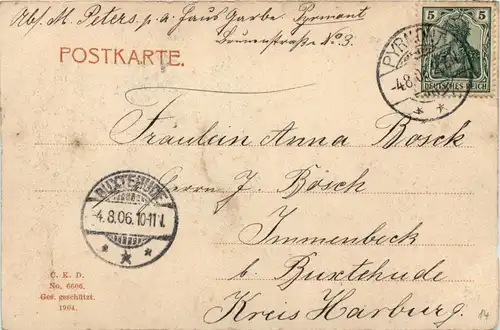 Abs. M. Peters. p. a. Haus Garbe. Pyrmont
Brunnenstraße No. 3.
POSTKARTE.
5 5
DEUTSCHES REICH
PYRMONT
4.8.06.
Fräulein Anna Bosck
Herrn J. Bösch
Immenbeck
b. Buxtehude
Kreis Harburg.
BUXTEHUDE
4.8.06.10-11 V.
C. K. D.
No. 6606.
Ges. geschützt.
1904.
14